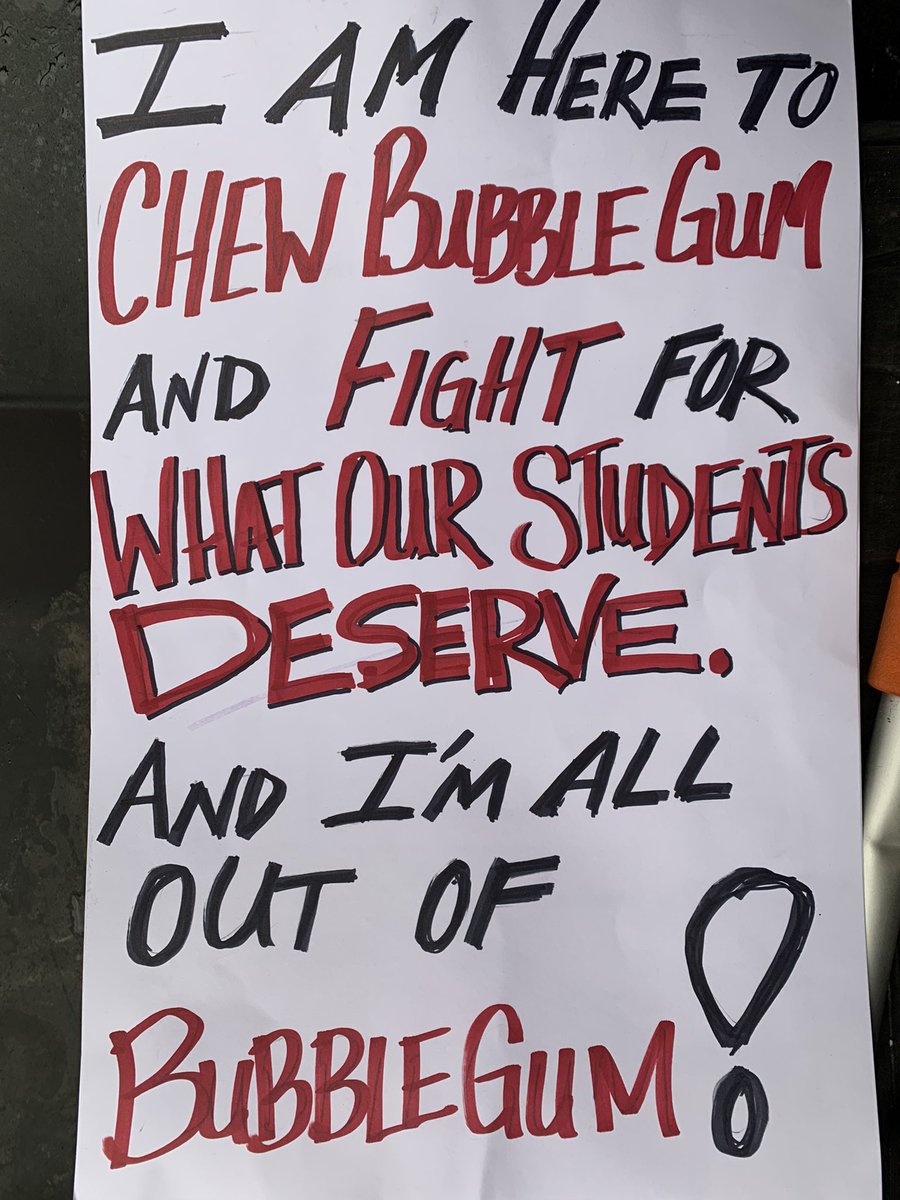 I AM HERE TO
CHEW BUBBLE GUM
AND FIGHT FOR
WHAT OUR STUDENTS
DESERVE.
AND I'M ALL
OUT OF
BUBBLE GUM!